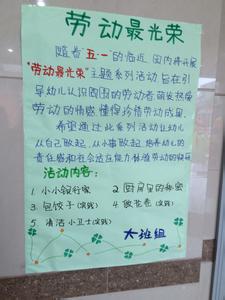 劳动最光荣
随着"五·一"的临近 园内将开展
"劳动最光荣"主题系列活动 旨在引
导幼儿认识周围的劳动者,萌发热爱
劳动的情感 懂得珍惜劳动成果.
希望通过此系列活动让幼儿
从自己做起,从小事做起 培养幼儿的
责任感和社会适应能力 体验劳动的
活动内容:
1. 小小银行家 2. 厨房里的秘密
3. 包饺子(实践) 4. 做花卷(实践)
5. 清洁小卫士(实践)
大班组